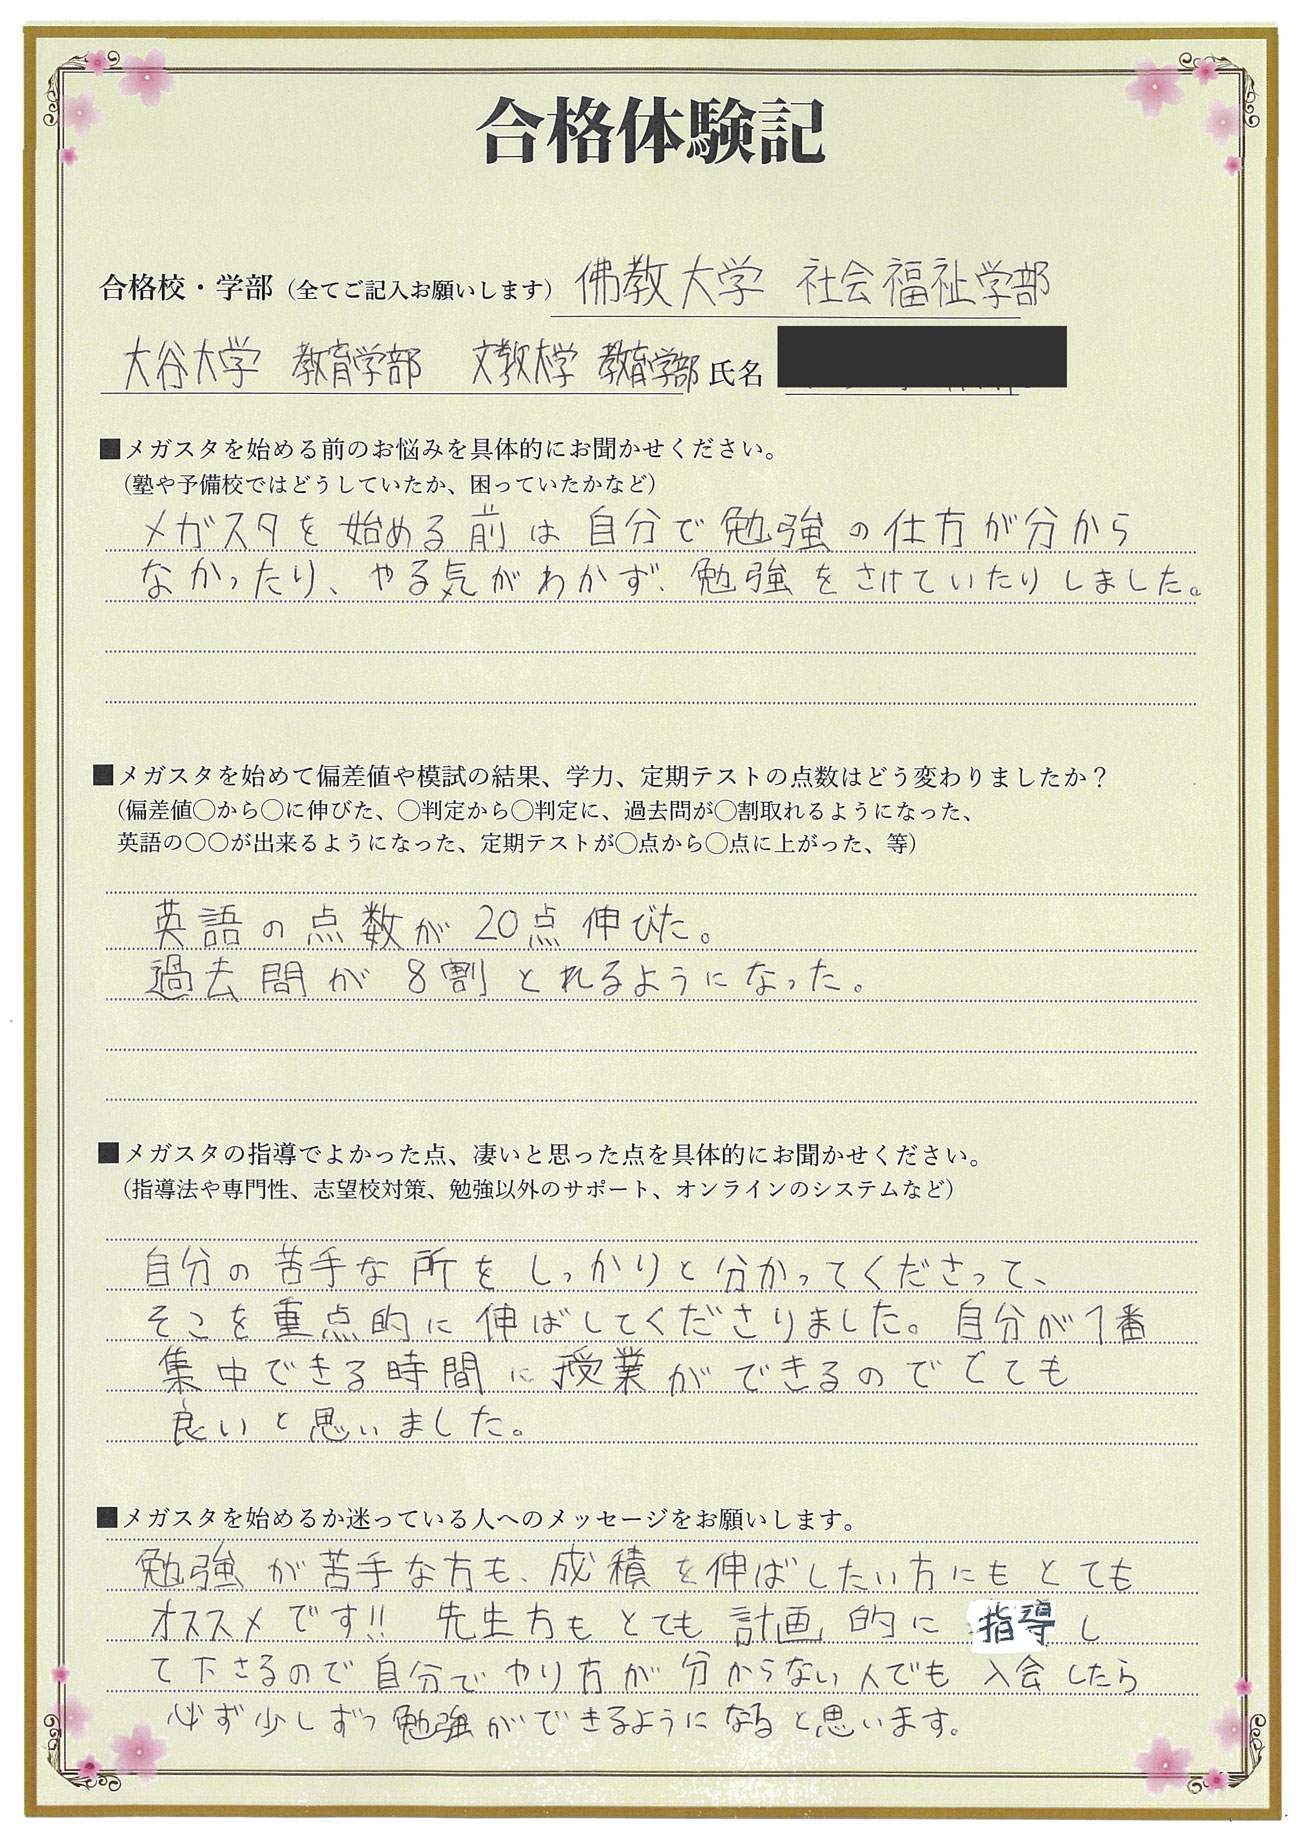 合格体験記
合格校・学部（全てご記入お願いします） 佛教大学 社会福祉学部
大谷大学 教育学部 文教大学 教育学部 氏名
■メガスタを始める前のお悩みを具体的にお聞かせください。
（塾や予備校ではどうしていたか、困っていたかなど）
メガスタを始める前は自分で勉強の仕方が分から
なかったり、やる気がわかず、勉強をさけていたりしました。
■メガスタを始めて偏差値や模試の結果、学力、定期テストの点数はどう変わりましたか？
（偏差値〇から〇に伸びた、〇判定から〇判定に、過去問が〇割取れるようになった、
英語の〇〇が出来るようになった、定期テストが〇点から〇点に上がった、等）
英語の点数が20点伸びた。
過去問が8割とれるようになった。
■メガスタの指導でよかった点、凄いと思った点を具体的にお聞かせください。
（指導法や専門性、志望校対策、勉強以外のサポート、オンラインのシステムなど）
自分の苦手な所をしっかりと分かってくださって、
そこを重点的に伸ばしてくださりました。自分が1番
集中できる時間に授業ができるのでとても
良いと思いました。
■メガスタを始めるか迷っている人へのメッセージをお願いします。
勉強が苦手な方も、成積を伸ばしたい方にもとても
オススメです!! 先生方もとても計画的に指導し
て下さるので自分でやり方が分からない人でも入会したら
必ず少しずつ勉強ができるようになると思います。